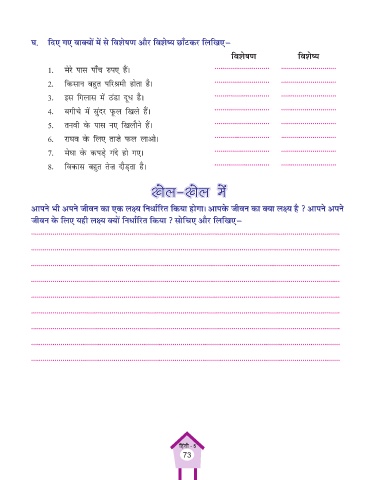 घ. दिए गए वाक्यों में से विशेषण और विशेष्य छाँटकर लिखिए–
विशेषण विशेष्य
1. मेरे पास पाँच रुपए हैं।
2. किसान बहुत परिश्रमी होता है।
3. इस गिलास में ठंडा दूध है।
4. बगीचे में सुंदर फूल खिले हैं।
5. तनवी के पास नए खिलौने हैं।
6. राघव के लिए ताजे फल लाओ।
7. मेघा के कपड़े गंदे हो गए।
8. विकास बहुत तेज दौड़ता है।
खेल-खेल में
आपने भी अपने जीवन का एक लक्ष्य निर्धारित किया होगा। आपके जीवन का क्या लक्ष्य है ? आपने अपने
जीवन के लिए यही लक्ष्य क्यों निर्धारित किया ? सोचिए और लिखिए–
हिंदी - 5
73